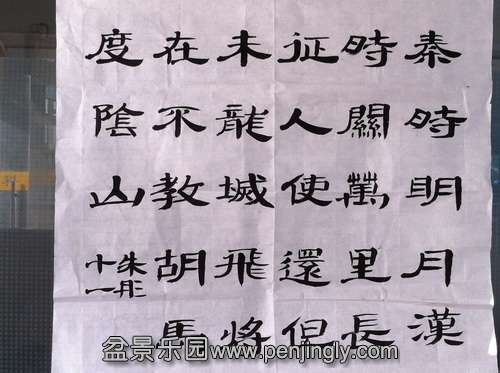 秦時明月漢
時關萬里長
征人使還但
未龍城飛將
在不教胡馬
度陰山
朱彤
十一
盆景乐园www.penjingly.com